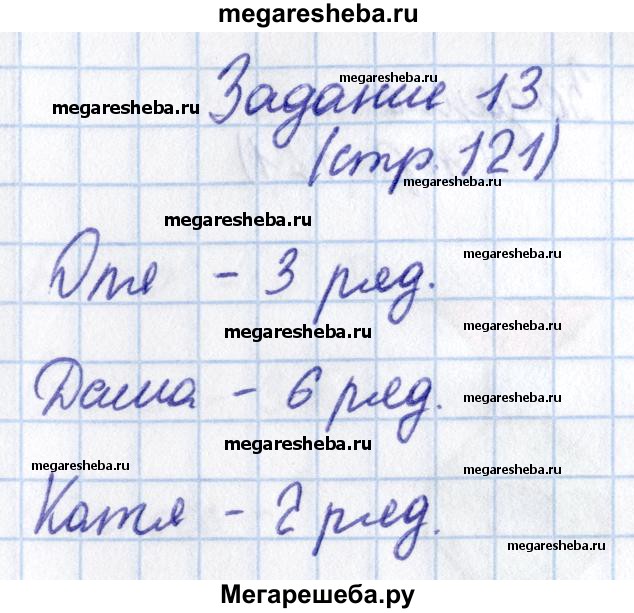 megaresheba.ru
Задание 13
megaresheba.ru
megaresheba.ru
(стр. 121)
megaresheba.ru
megaresheba.ru
Оля - 3 ряд.
megaresheba.ru
megaresheba.ru
megaresheba.ru
Даша - 6 ряд.
megaresheba.ru
megaresheba.ru
megaresheba.ru
megaresheba.ru
Катя - 2 ряд.
megaresheba.ru
Мегарешеба.ру